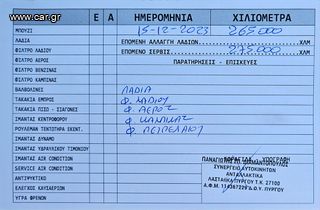 www.car.gr
Ε Α ΗΜΕΡΟΜΗΝΙΑ ΧΙΛΙΟΜΕΤΡΑ
ΜΠΟΥΖΙ 15-12-2023 265000
ΛΑΔΙΑ ΕΠΟΜΕΝΗ ΑΛΛΑΓΗ ΛΑΔΙΩΝ ΧΛΜ
ΦΙΛΤΡΟ ΛΑΔΙΟΥ ΕΠΟΜΕΝΟ ΣΕΡΒΙΣ 275.000 ΧΛΜ
ΦΙΛΤΡΟ ΑΕΡΟΣ ΠΑΡΑΤΗΡΗΣΕΙΣ - ΕΠΙΣΚΕΥΕΣ
ΦΙΛΤΡΟ ΒΕΝΖΙΝΑΣ
ΦΙΛΤΡΟ ΚΑΜΠΙΝΑΣ
ΒΑΛΒΟΛΙΝΕΣ ΛΑΔΙΑ
ΤΑΚΑΚΙΑ ΕΜΠΡΟΣ Φ. ΛΑΔΙΟΥ
ΤΑΚΑΚΙΑ ΠΙΣΩ - ΣΙΑΓΟΝΕΣ Φ. ΑΕΡΟΣ
ΙΜΑΝΤΑΣ ΚΕΝΤΡΟΦΟΡΟΥ Φ. ΚΑΜΠΙΝΑΣ
ΡΟΥΛΕΜΑΝ ΤΕΝΤΩΤΗΡΑ ΕΚΕΝΤ. Φ. ΠΕΤΡΕΛΑΙΟΥ
ΙΜΑΝΤΑΣ ΔΥΝΑΜΟ
ΙΜΑΝΤΑΣ ΥΔΡΑΥΛΙΚΟΥ ΤΙΜΟΝΙΟΥ
ΙΜΑΝΤΑΣ AIR CONDITION ΣΦΡΑΓΙΔΑ - ΥΠΟΓΡΑΦΗ
SERVICE AIR CONDITION ΣΥΝΕΡΓΕΙΟ ΑΥΤΟΚΙΝΗΤΩΝ
ΑΝΤΙΨΥΚΤΙΚΟ ΑΝΤΑΛΛΑΚΤΙΚΑ
ΕΛΕΓΧΟΣ ΚΑΥΣΑΕΡΙΩΝ ΛΑΣΤΑΙΙΚΑ ΠΥΡΓΟΥ Τ.Κ. 27100
ΥΓΡΑ ΦΡΕΝΩΝ Δ.Ο.Υ. ΠΥΡΓΟΥ